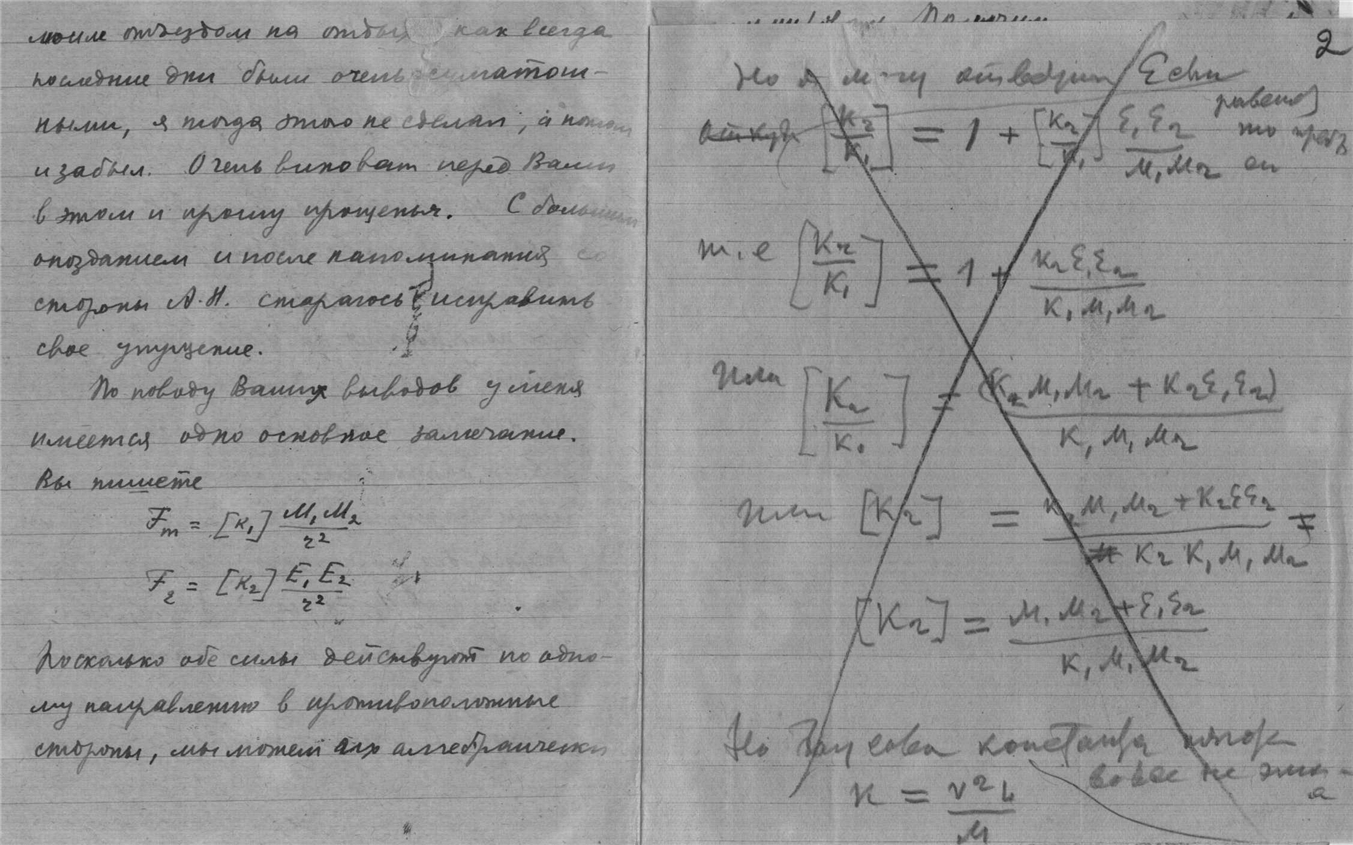 моим отъездом на отдых как всегда
последние дни были очень суматош-
ными, я тогда этого не сделал, а потом
и забыл. Очень виноват перед Вами
в этом и прошу прощенья. С большим
опозданием и после напоминания со
стороны А.Н. стараюсь исправить
свое упущение.
По поводу Ваших выводов у меня
имеется одно основное замечание.
Вы пишете
F_m = [K_1] M_1 M_2 / r^2
F_2 = [K_2] E_1 E_2 / r^2
Поскольку обе силы действуют по одно-
му направлению в противоположные
стороны, мы можем их алгебраически
2
Но я могу Если
[K_2/K_1] = 1 + [K_2/K_1] ε_1 ε_2 / M_1 M_2
т.е [K_2/K_1] = 1 + K_2 ε_1 ε_2 / K_1 M_1 M_2
или [K_2/K_1] = (K_2 M_1 M_2 + K_2 ε_1 ε_2) / K_1 M_1 M_2
или [K_2] = K_2 M_1 M_2 + K_2 ε ε_2 / K_2 K_1 M_1 M_2 =
[K_2] = M_1 M_2 + ε_1 ε_2 / K_1 M_1 M_2
Но константа
вовсе не
K = v^2 L / M